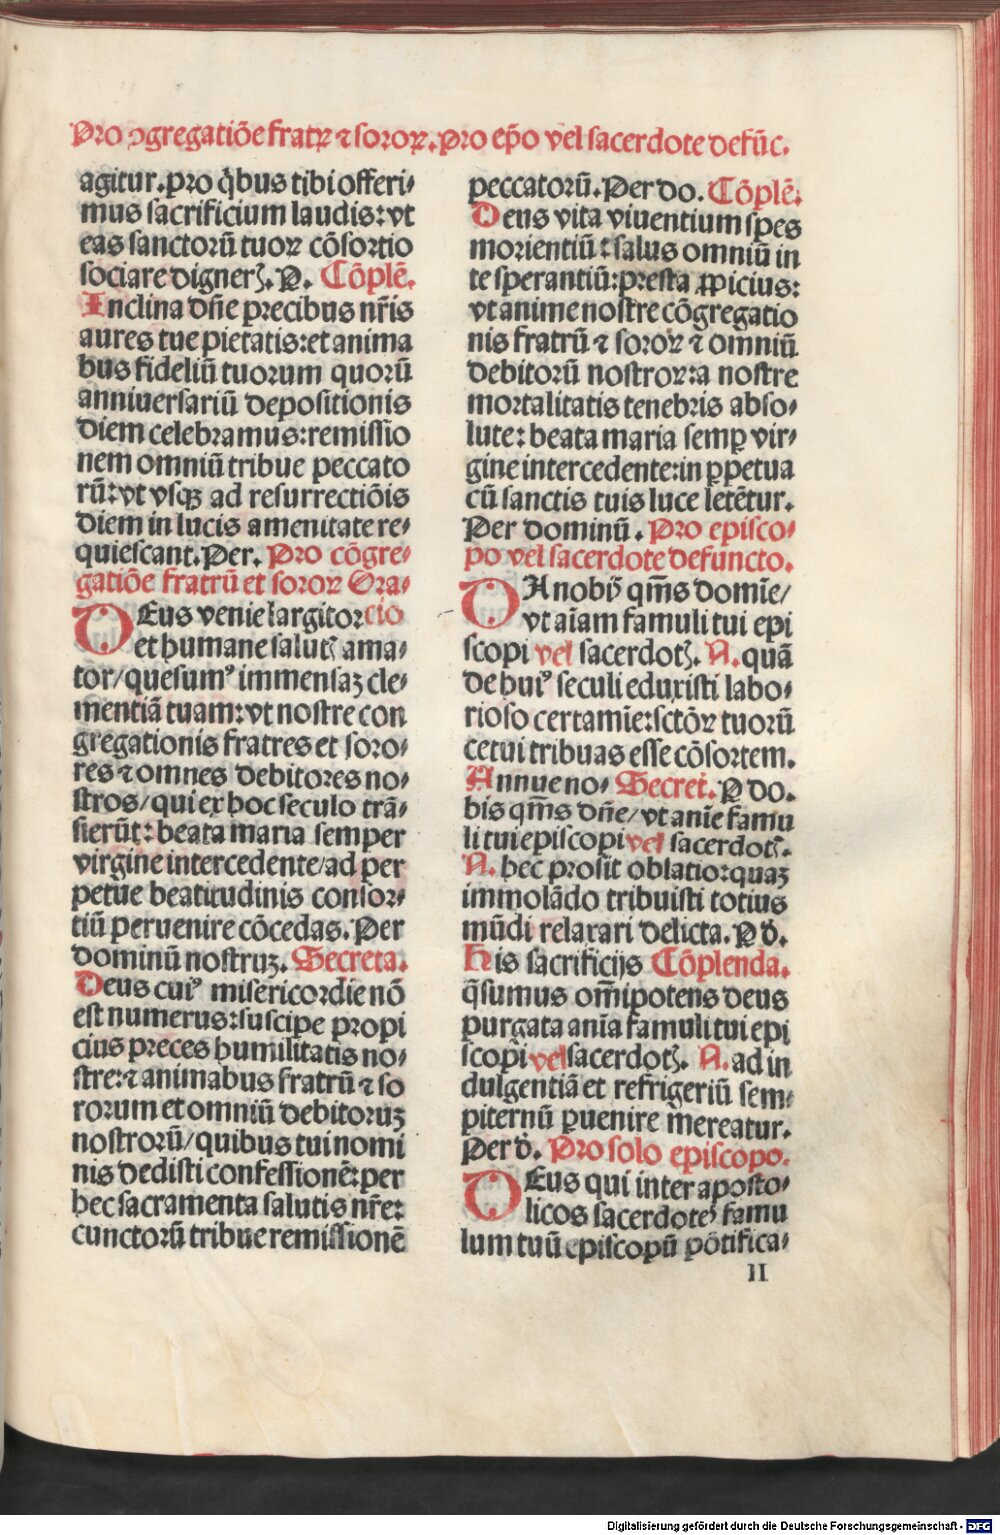 Pro ꝯgregatiõe fratrꝝ ⁊ sororꝝ. pro ep̃o vel sacerdote defũc.
agitur. pro q̃bus tibi offeri⸗
mus sacrificium laudis: vt
eas sanctorũ tuoꝝ cõsortio
sociare digneris. P. Cõplẽ.
Inclina dñe precibus nr̃is
aures tue pietatis: et anima
bus fideliũ tuorum quorũ
anniuersariũ depositionis
diem celebramus: remissio
nem omniũ tribue peccato
rũ: vt vsqꝫ ad resurrectiõis
diem in lucis amenitate re⸗
quiescant. Per. Pro cõgre⸗
gatiõe fratrũ et soroꝝ Ora⸗
DEus venie largitor cio
et humane salutꝭ ama⸗
tor/ quesumꝰ immensaꝫ cle⸗
mentiã tuam: vt nostre con
gregationis fratres et soro⸗
res ⁊ omnes debitores no⸗
stros/ qui ex hoc seculo trã⸗
sierũt: beata maria semper
virgine intercedente/ ad per
petue beatitudinis consor⸗
tiũ peruenire cõcedas. Per
dominũ nostruꝫ. Secreta.
Deus cuiꝰ misericordie nõ
est numerus: suscipe propi
cius preces humilitatis no⸗
stre: ⁊ animabus fratrũ ⁊ so
rorum et omniũ debitoruꝫ
nostrorũ/ quibus tui nomi
nis dedisti confessionẽ: per
hec sacramenta salutis nr̃e:
cunctorũ tribue remissionẽ
peccatorũ. Per do. Cõplẽ.
Deus vita viuentium spes
morientiũ: salus omniũ in
te sperantiũ: presta ꝓpicius:
vt anime nostre cõgregatio
nis fratrũ ⁊ soroꝝ ⁊ omniũ
debitorũ nostroꝝ: a nostre
mortalitatis tenebris abso⸗
lute: beata maria semꝑ vir⸗
gine intercedente: in ꝑpetua
cũ sanctis tuis luce letẽtur.
Per dominũ. Pro episco⸗
po vel sacerdote defuncto.
DA nobis qm̃s domĩe/
vt aĩam famuli tui epi
scopi vel sacerdotꝭ. N. quã
de huiꝰ seculi eduxisti labo⸗
rioso certamĩe: sctõꝝ tuorũ
cetui tribuas esse cõsortem.
Annue no⸗ Secret. P do.
bis qm̃s dñe/ vt anĩe famu
li tui episcopi vel sacerdotꝭ.
N. hec prosit oblatio: quaꝫ
immolãdo tribuisti totius
mũdi relaxari delicta. P d̉.
His sacrificijs Cõplenda.
q̃sumus om̃ipotens deus
purgata anĩa famuli tui epi
scopi vel sacerdotꝭ. N. ad in
dulgentiã et refrigeriũ sem⸗
piternũ ꝑuenire mereatur.
Per d̉. Pro solo episcopo.
DEus qui inter aposto⸗
licos sacerdotes famu
lum tuũ episcopũ põtifica⸗
II
Digitalisierung gefördert durch die Deutsche Forschungsgemeinschaft - DFG